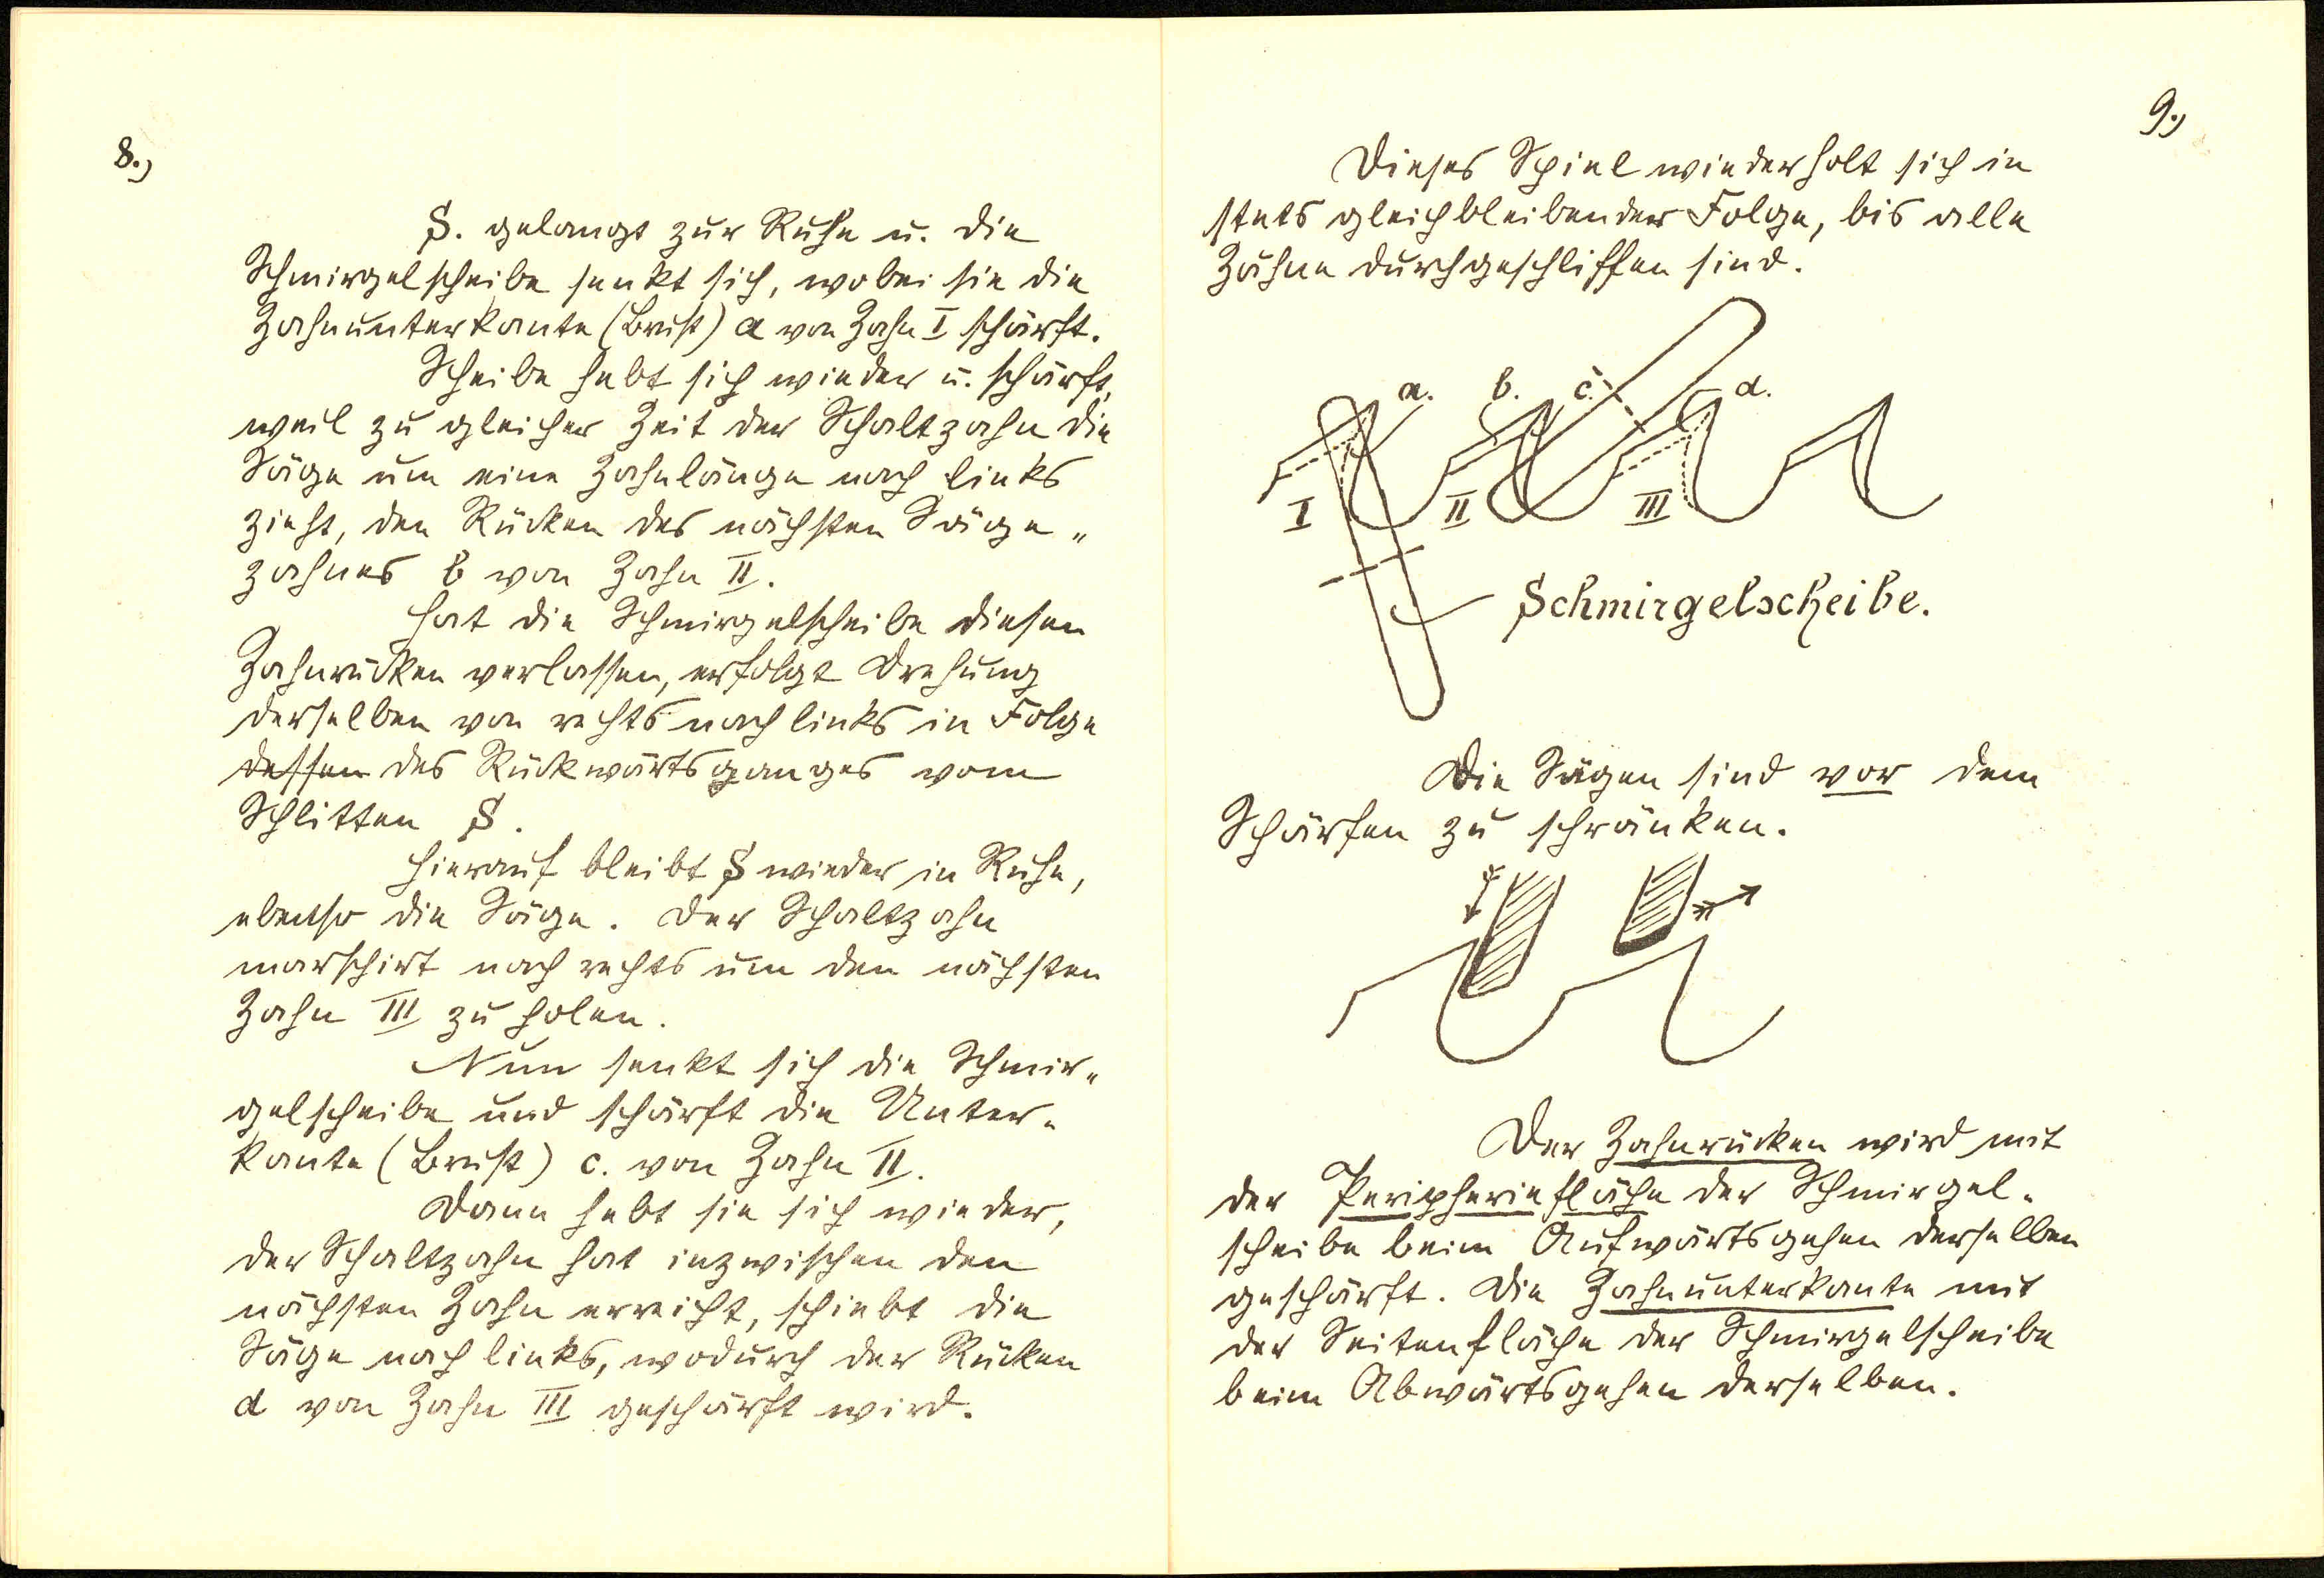 8.)
S. gelangt zur Ruhe u. die
Schmirgelscheibe senkt sich, wobei sie die
Zahnunterkante (Brust) a von Zahn I schärft.
Scheibe hebt sich wieder u. schärft,
weil zu gleicher Zeit der Schaltzahn die
Säge um eine Zahnlänge nach links
zieht, den Rücken des nächsten Säge„
zahnes b von Zahn II.
Hat die Schmirgelscheibe diesen
Zahnrücken verlassen, erfolgt Drehung
derselben von rechts nach links in Folge
dessen des Rückwärtsganges vom
Schlitten S.
Hierauf bleibt S wieder in Ruhe,
ebenso die Säge. Der Schaltzahn
marschirt nach rechts um den nächsten
Zahn III zu holen.
Nun senkt sich die Schmir„
gelscheibe und schärft die Unter„
kante (Brust) c. von Zahn II.
Dann hebt sie sich wieder,
der Schaltzahn hat inzwischen den
nächsten Zahn erreicht, schiebt die
Säge nach links, wodurch der Rücken
d von Zahn III geschärft wird.
9.)
Dieses Spiel wiederholt sich in
stets gleichbleibender Folge, bis alle
Zähne durchgeschliffen sind.
a. b. c. d.
I II III
Schmirgelscheibe.
Die Sägen sind vor dem
Schärfen zu schränken.
Der Zahnrücken wird mit
der Peripheriefläche der Schmirgel„
scheibe beim Aufwärtsgehen derselben
geschärft. Die Zahnunterkante mit
der Seitenfläche der Schmirgelscheibe
beim Abwärtsgehen derselben.